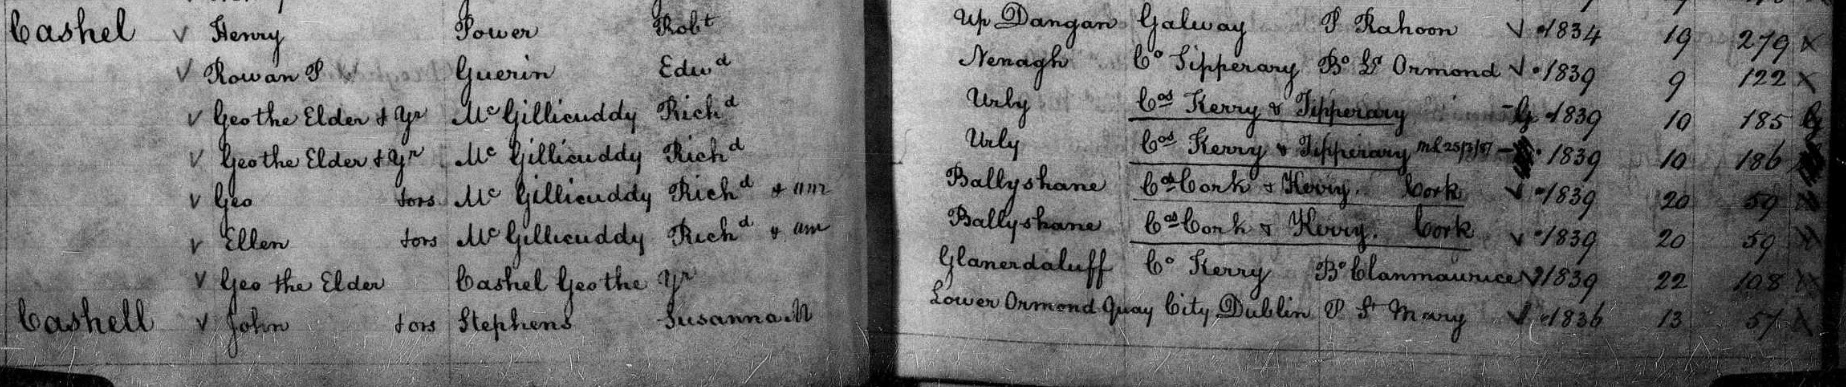 Cashel √ Henry Power Robt Up Dangan Galway P Rahoon √ 1834 19 279 X
√ Rowan P √ Guerin Edwd Nenagh Co Tipperary Bo Lr Ormond √ 1839 9 122 X
√ Geo the Elder & Yr McGillicuddy Richd Urly Cos Kerry & Tipperary G 1839 10 185 G
√ Geo the Elder & Yr McGillicuddy Richd Urly Cos Kerry & Tipperary 1839 10 186
√ Geo & ors McGillicuddy Richd & anr Ballyshane Cos Cork & Kerry. Cork √ 1839 20 59 X
√ Ellen & ors McGillicuddy Richd & anr Ballyshane Cos Cork & Kerry. Cork √ 1839 20 59 X
√ Geo the Elder Cashel Geo the Yr Glanerdaluff Co Kerry Bo Clanmaurice √ 1839 22 108 X
Cashell √ John & ors Stephens Susanna M Lower Ormond Quay City Dublin P St Mary √ 1836 13 57 X